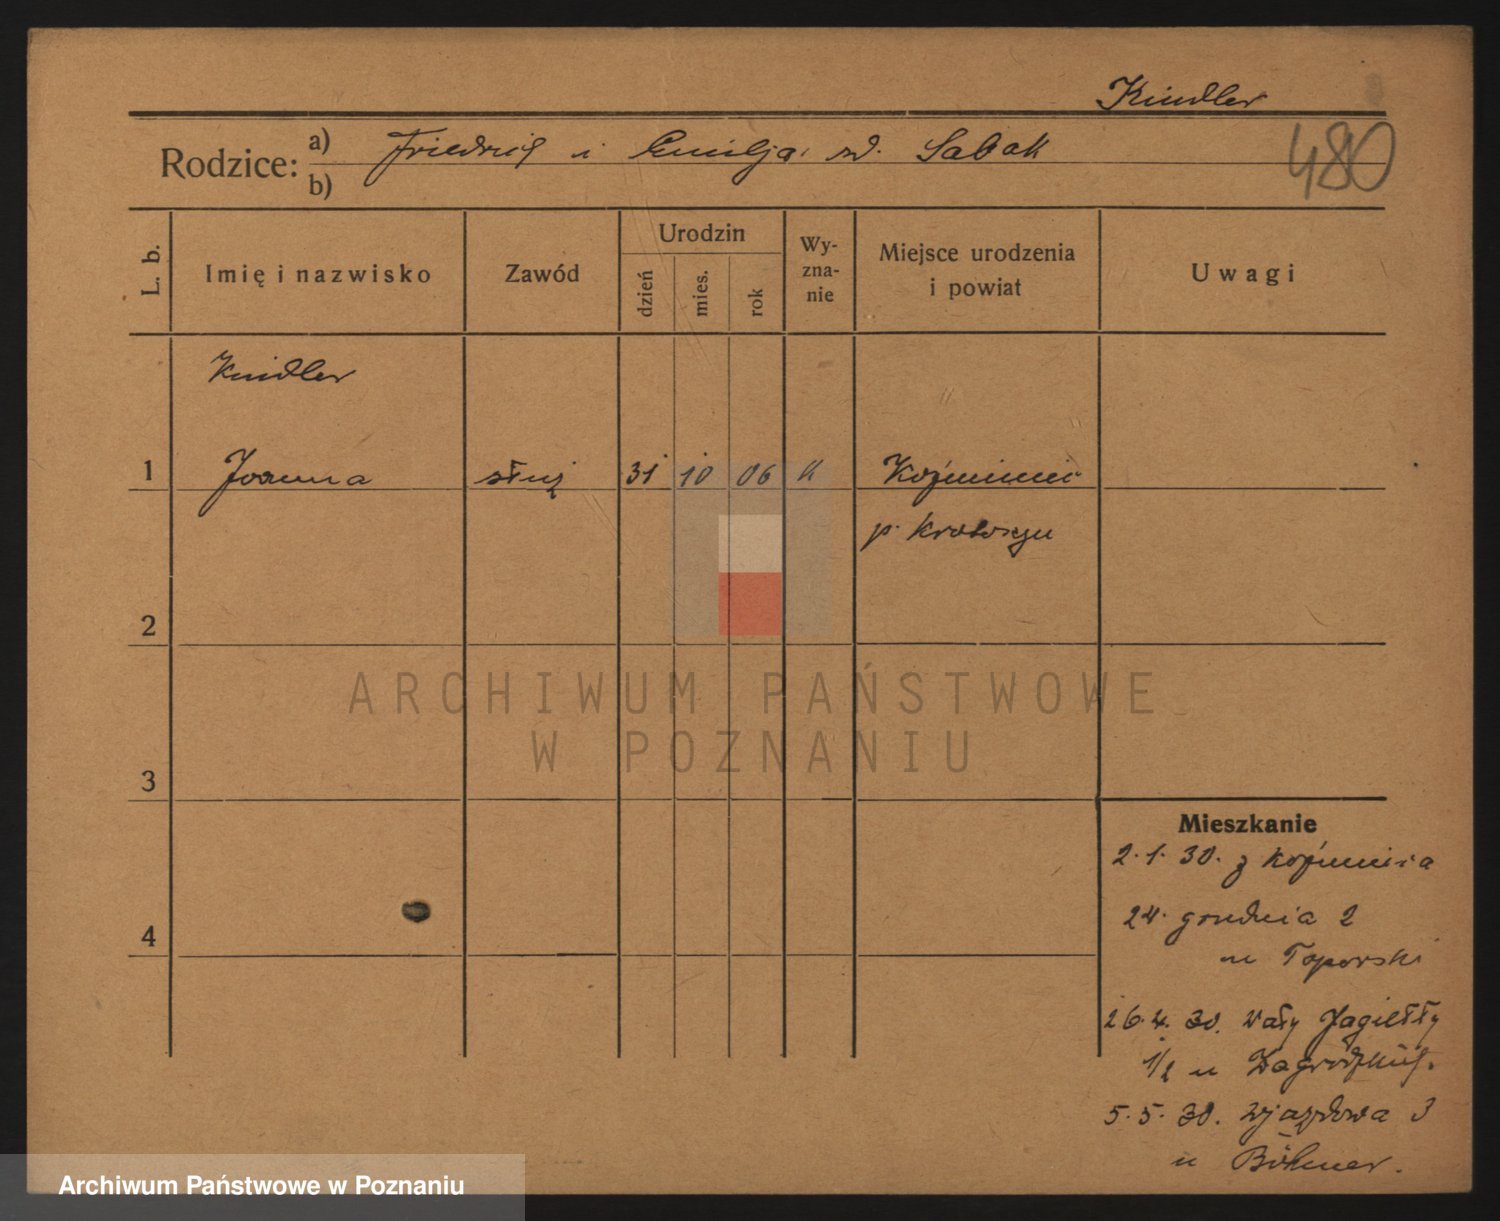 Kindler
480
Rodzice: a) Friedrich i Emilja
b)
L. b.
Imię i nazwisko
Zawód
Urodzin
dzień
mies.
rok
Wy-
zna-
nie
Miejsce urodzenia
i powiat
Uwagi
Kindler
1 Joanna służ 31 10 06 Koźminiec
p. Krotoszyn
2
ARCHIWUM PAŃSTWOWE
W POZNANIU
3
4
Mieszkanie
2.1.30. z Koźmińca
24. grudnia 2
u Toporski
26.4.30. Wały Jagiełły
1/2 u
5.5.30. Wjazdowa 3
u Böhmer.
Archiwum Państwowe w Poznaniu